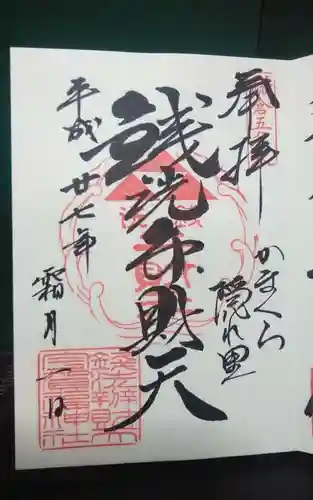 奉拝
かまくら
隠れ里
銭洗弁財天
平成廿七年
霜月一日